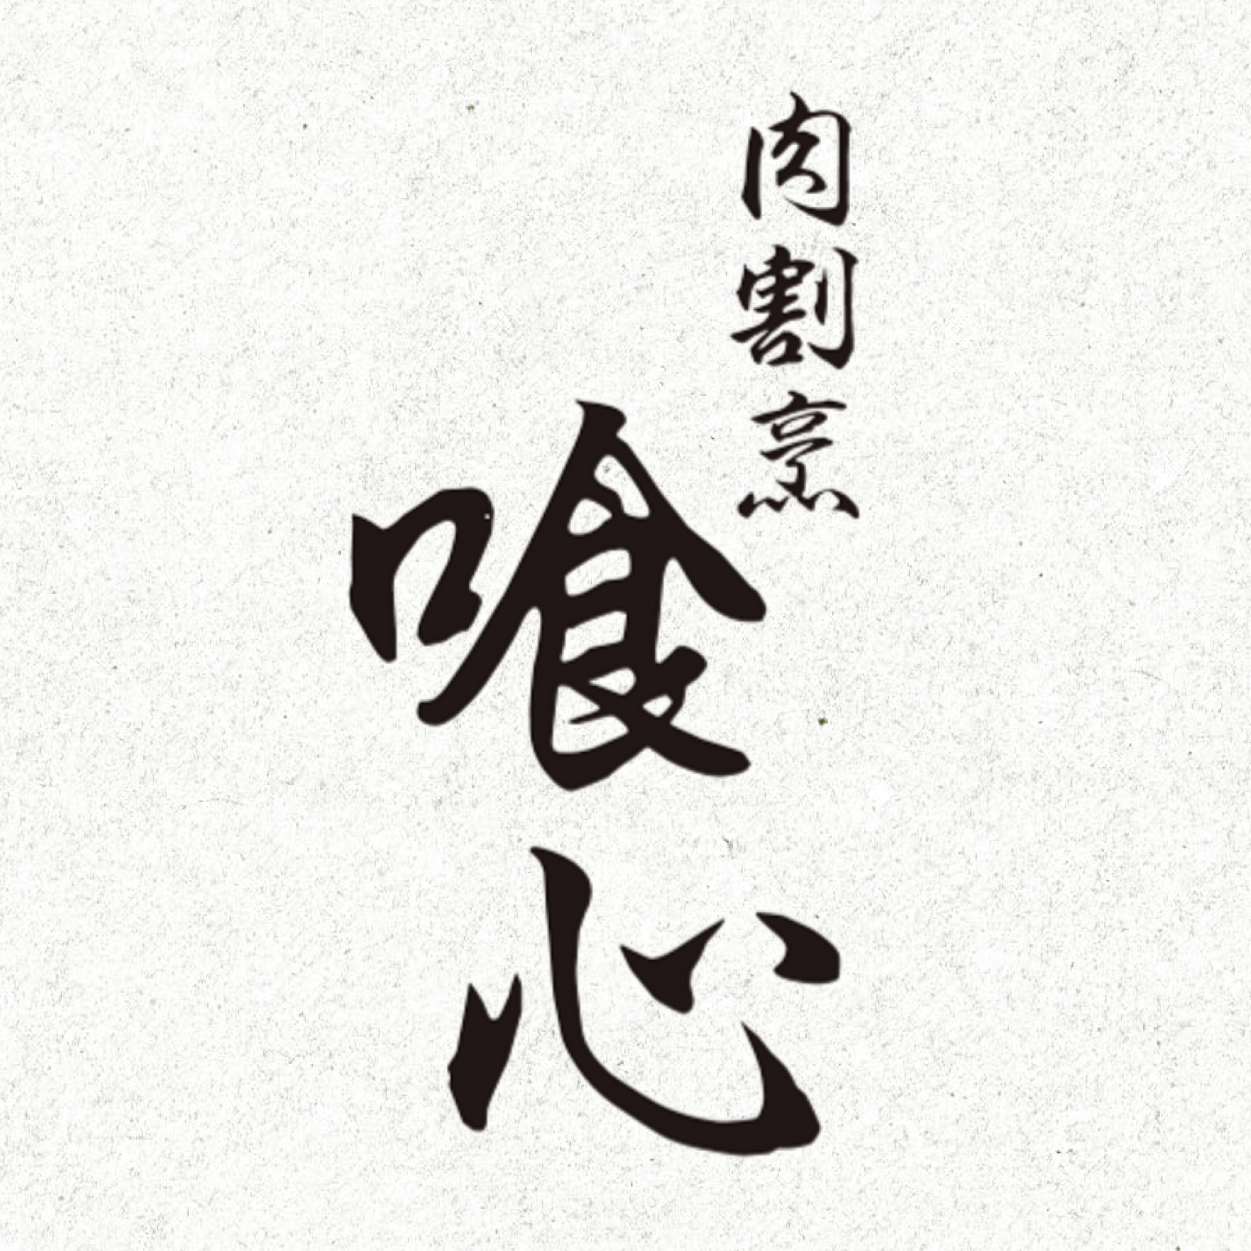 肉割烹
喰心